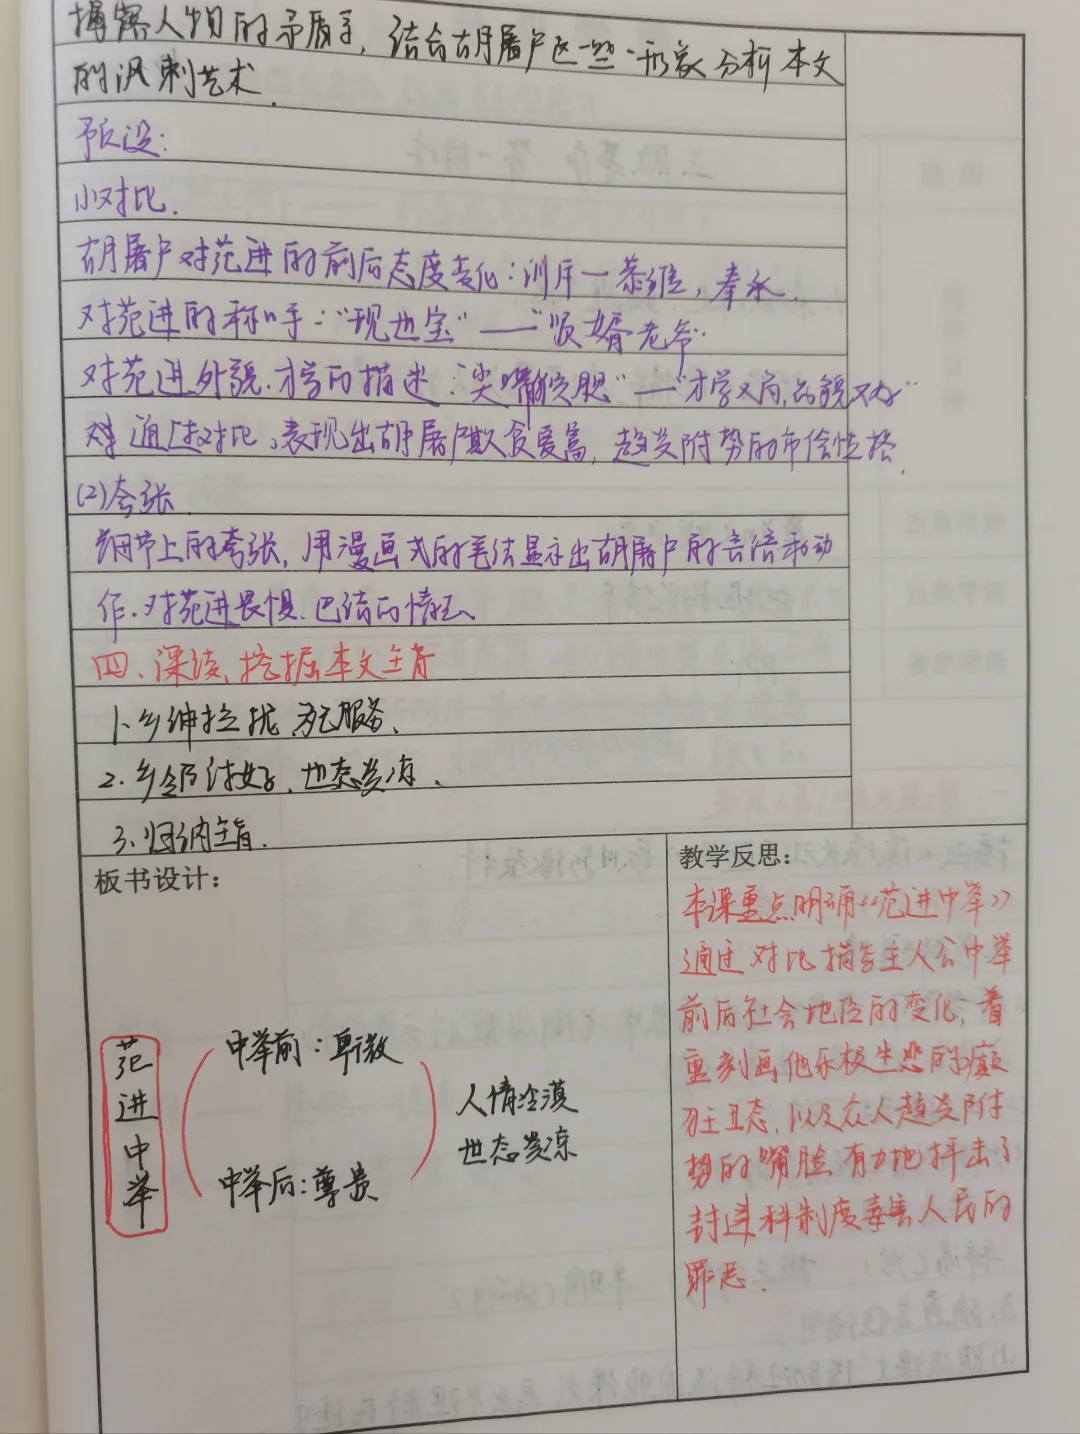 人物的矛盾,结合胡屠户这一些一形象分析本文
的讽刺艺术.
预设:
(1)对比.
胡屠户对范进的前后态度变化:训斥一恭维,奉承.
对范进的称呼:“现世宝”——“贤婿老爷”
对范进外貌.才学的描述:“尖嘴猴腮”—“才学又高,品貌又好”
通过对比,表现出胡屠户欺贫爱富,趋炎附势的市侩性格.
(2)夸张.
细节上的夸张,用漫画式的笔法显示出胡屠户的言语和动
作.对范进畏惧.巴结的情态、
四、深读,挖掘本文主旨
1、乡绅拉拢
2.乡邻讨好、世态炎凉、
3、归纳主旨.
板书设计:
教学反思:
本课重点明确《范进中举》
通过对比描写主人公中举
前后社会地位的变化,着
重刻画他乐极生悲的癫
狂丑态,以及众人趋炎附
势的嘴脸,有力地抨击了
封建科制度毒害人民的
罪恶.
范进中举
中举前:卑微
中举后:尊贵
人情冷漠
世态炎凉